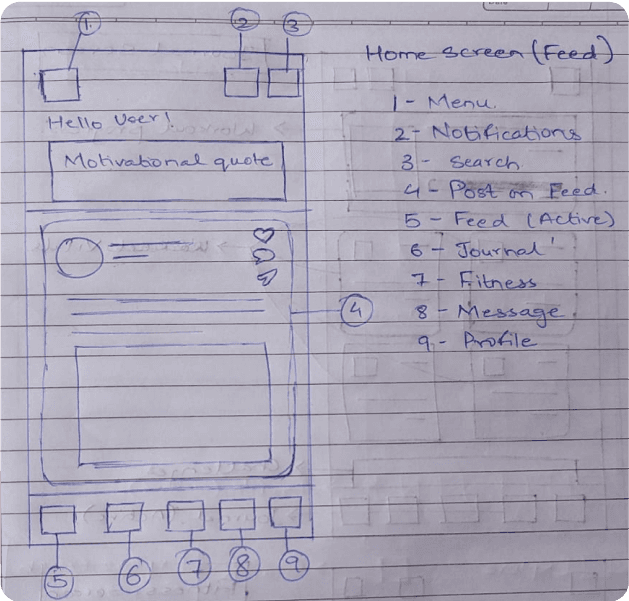 1
2
3
Home screen (Feed)
Hello User!
Motivational quote
1 - Menu
2 - Notifications
3 - Search
4 - Post on Feed.
5 - Feed (Active)
6 - Journal
7 - Fitness
8 - Message
9 - Profile
4
5
6
7
8
9